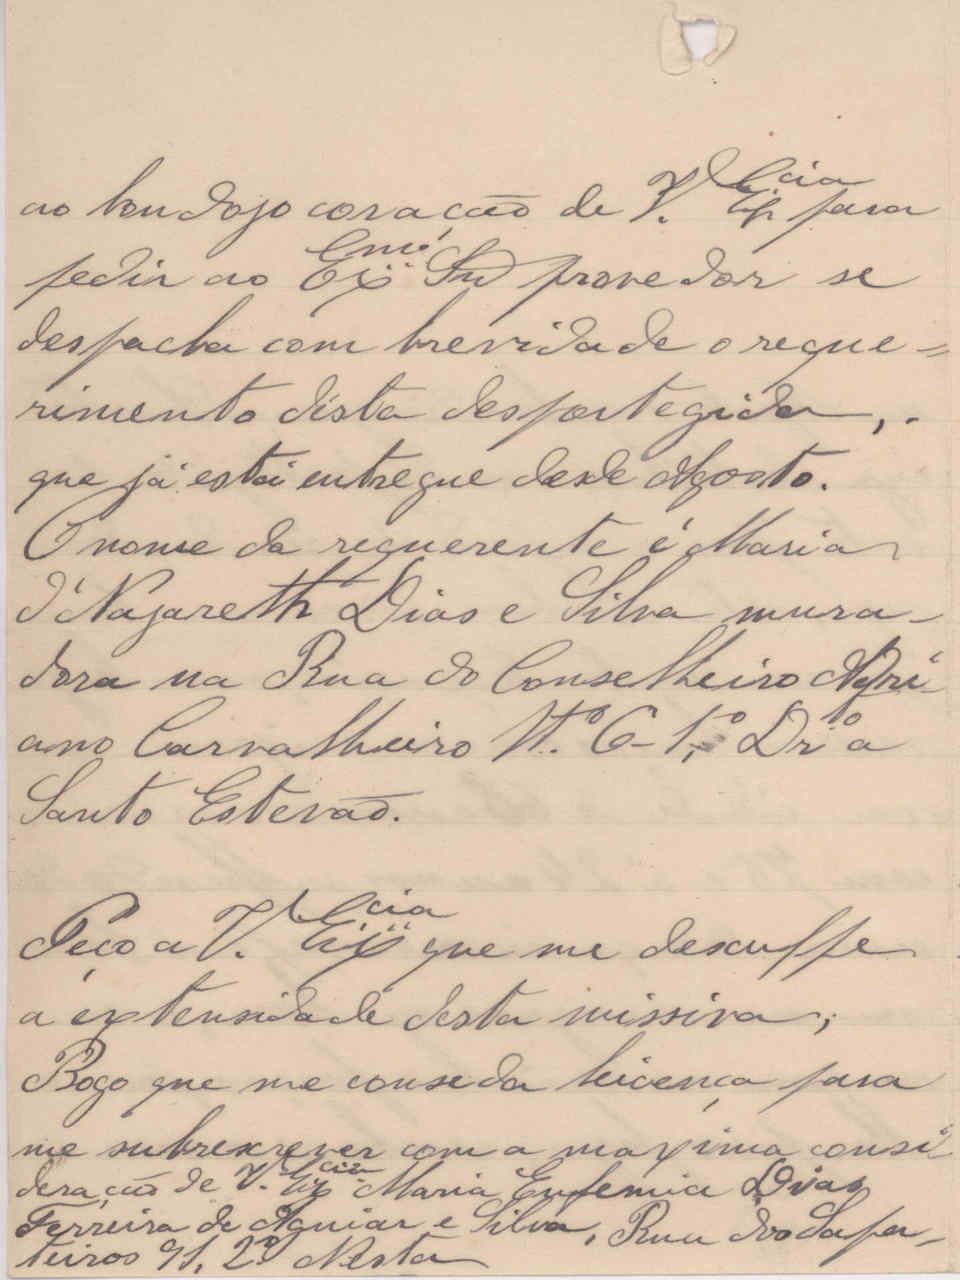 ao bondoso coração de V. Ex.cia para
pedir ao Ex.mo Snr provedor se
despacha com brevidade o reque=
rimento désta desportegida,.
que já está entregue desde Agosto.
O nome da requerente é Maria
d'Nazareth Dias e Silva mura-
dora na Rua do Conselheiro Adri-
ano Carvalheiro N.º 6-1.º Dr.to a
Santo Estevão.
Peco a V. Ex.cia que me desculpe
a extensidade desta missiva,
Rogo que me conseda leicença para
me subrexrever com a maxima consi
deração de V. Ex.cia Maria Eufemia Dias
Ferreira de Aguiar e Silva, Rua dos Sapa-
teiros 91, 2º Nesta